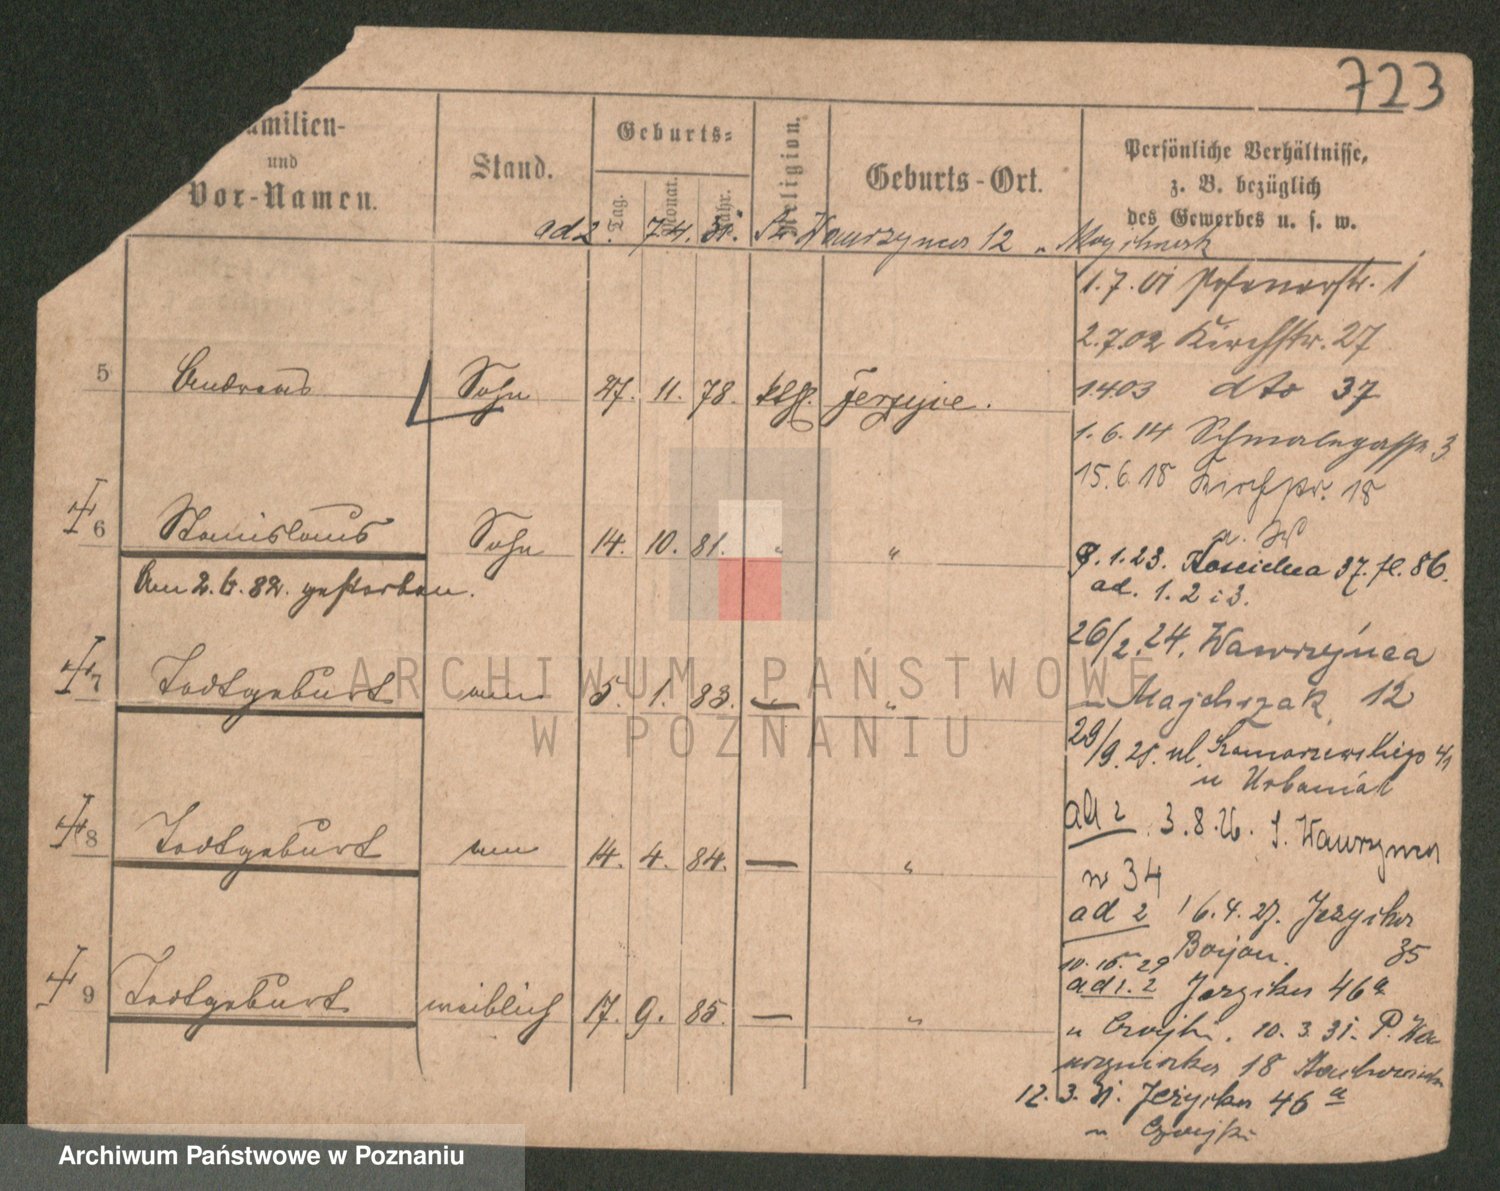 723
Familien-
und
Vor-Namen.
Stand.
Geburts-
Tag.
Monat.
Jahr.
Religion.
Geburts-Ort.
Persönliche Verhältnisse,
z. B. bezüglich
des Gewerbes u. s. w.
ad 2. 7.4. 31. Wawrzynca 12
1.7.01 Posenerstr. 1
2.7.02 Kirchstr. 27
5 Andreas Sohn 27. 11. 78. kth. Jerzyce.
1.4.03 dto 37
1.6.14 Schmalegasse 3
15.6.18 Kirchstr. 18
6 Stanislaus Sohn 14. 10. 81. " "
1.23. Kościelna 37. fl. 86.
Am 2.6.82. gestorben.
ad. 1. 2 i 3.
26/2.24. Wawrzyńca
7 Todtgeburt 5. 1. 83. — "
Majchrzak 12
29/9.25. ul. Szamarzewskiego 41
u Urbaniak
8 Todtgeburt 14. 4. 84. — "
ad 2 3.8.26. Wawrzynca
w 34
ad 2 16.4.27. Jeżycka
35
9 Todtgeburt weiblich 17. 9. 85. — "
29
ad 1. 2 Jeżycka 46a
u 10.3.31.
18
12.3.31. Jeżycka 46a
u
ARCHIWUM PAŃSTWOWE
W POZNANIU
Archiwum Państwowe w Poznaniu